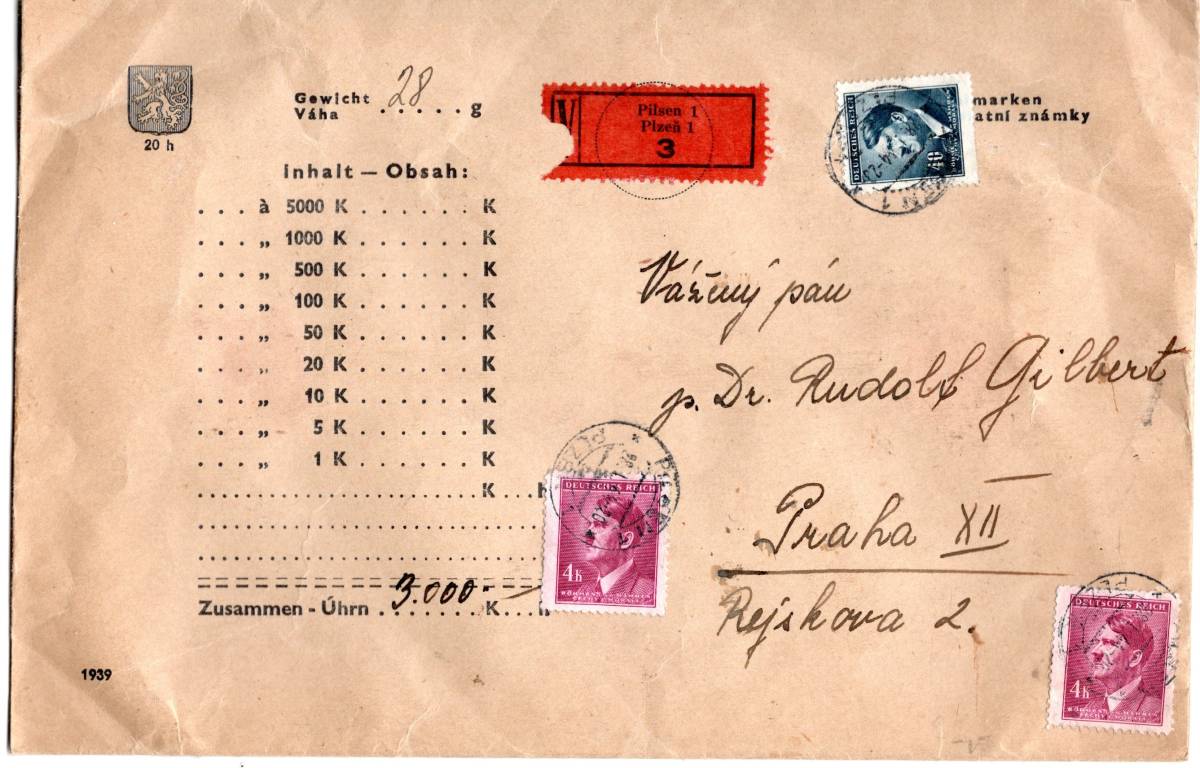 20 h
Gewicht 28 g
Váha
Inhalt — Obsah:
. . . à 5000 K . . . . . . . K
. . . „ 1000 K . . . . . . . K
. . . „ 500 K . . . . . . . K
. . . „ 100 K . . . . . . . K
. . . „ 50 K . . . . . . . K
. . . „ 20 K . . . . . . . K
. . . „ 10 K . . . . . . . K
. . . „ 5 K . . . . . . . K
. . . „ 1 K . . . . . . . K
K
Zusammen - Úhrn 3.000.- K h
1939
V
Pilsen 1
Plzeň 1
3
DEUTSCHES REICH
40
marken
atní známky
Vážený pán
p. Dr. Rudolf Gilbert
Praha XII
Rejskova 2.
DEUTSCHES REICH
4h
BÖHMEN U. MÄHREN
ČECHY A MORAVA
DEUTSCHES REICH
4h
BÖHMEN U. MÄHREN
ČECHY A MORAVA